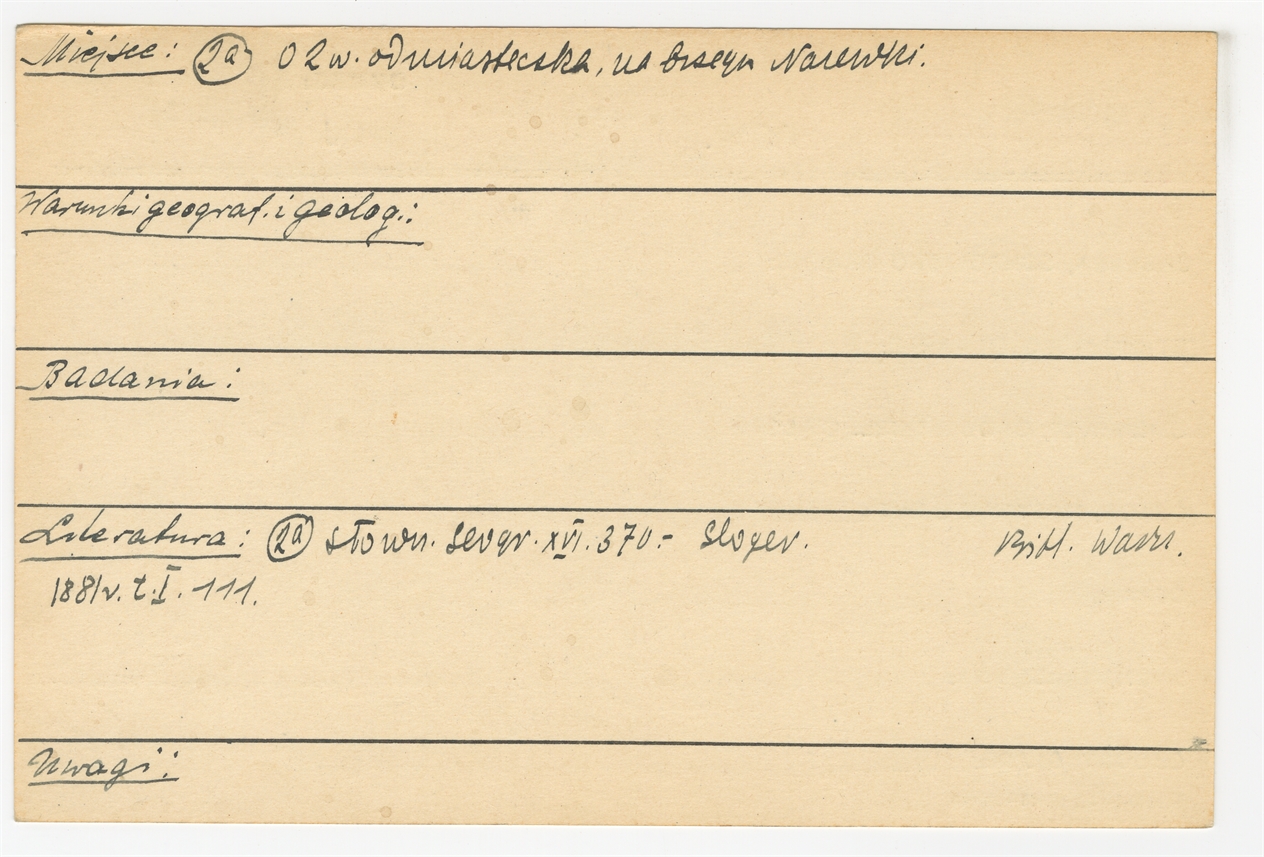 Miejsce: 2a O 2 w. od miasteczka, na brzegu Narewki.
Warunki geograf. i geolog.:
Badania:
Literatura: 2a Słown. Geogr. XVI. 370.- Gloger. Bibl. Warsz.
1881 r. t. I. 111.
Uwagi: